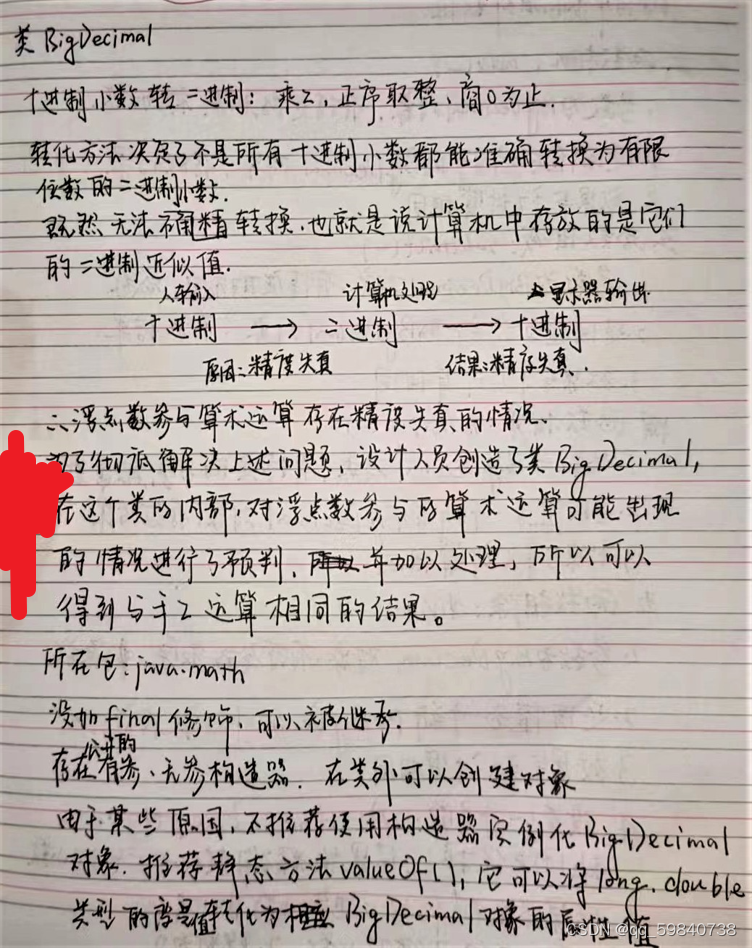 类 BigDecimal
十进制小数转二进制：乘2，正序取整，商0为止.
转化方法决定了不是所有十进制小数都能准确转换为有限
位数的二进制小数.
既然无法确精转换，也就是说计算机中存放的是它们
的二进制近似值.
人输入 计算机处理 显示器输出
十进制 → 二进制 → 十进制
原因：精度失真 结果：精度失真.
∴浮点数参与算术运算存在精度失真的情况.
为了彻底解决上述问题，设计人员创造了类BigDecimal,
在这个类的内部，对浮点数参与的算术运算可能出现
的情况进行了预判，并加以处理，所以可以
得到与手工运算相同的结果。
所在包：java.math
没加final修饰，可以被继承.
公开的
存在有参、无参构造器. 在类外可以创建对象
由于某些原因，不推荐使用构造器实例化BigDecimal
对象. 推荐静态方法valueOf(), 它可以将long、double
类型的 值转化为相应BigDecimal对象的 值
CSDN @qq_59840738